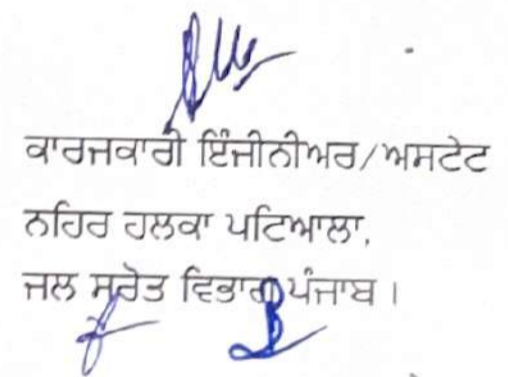 ਕਾਰਜਕਾਰੀ ਇੰਜੀਨੀਅਰ/ਅਸਟੇਟ
ਨਹਿਰ ਹਲਕਾ ਪਟਿਆਲਾ,
ਜਲ ਸਰੋਤ ਵਿਭਾਗ ਪੰਜਾਬ।